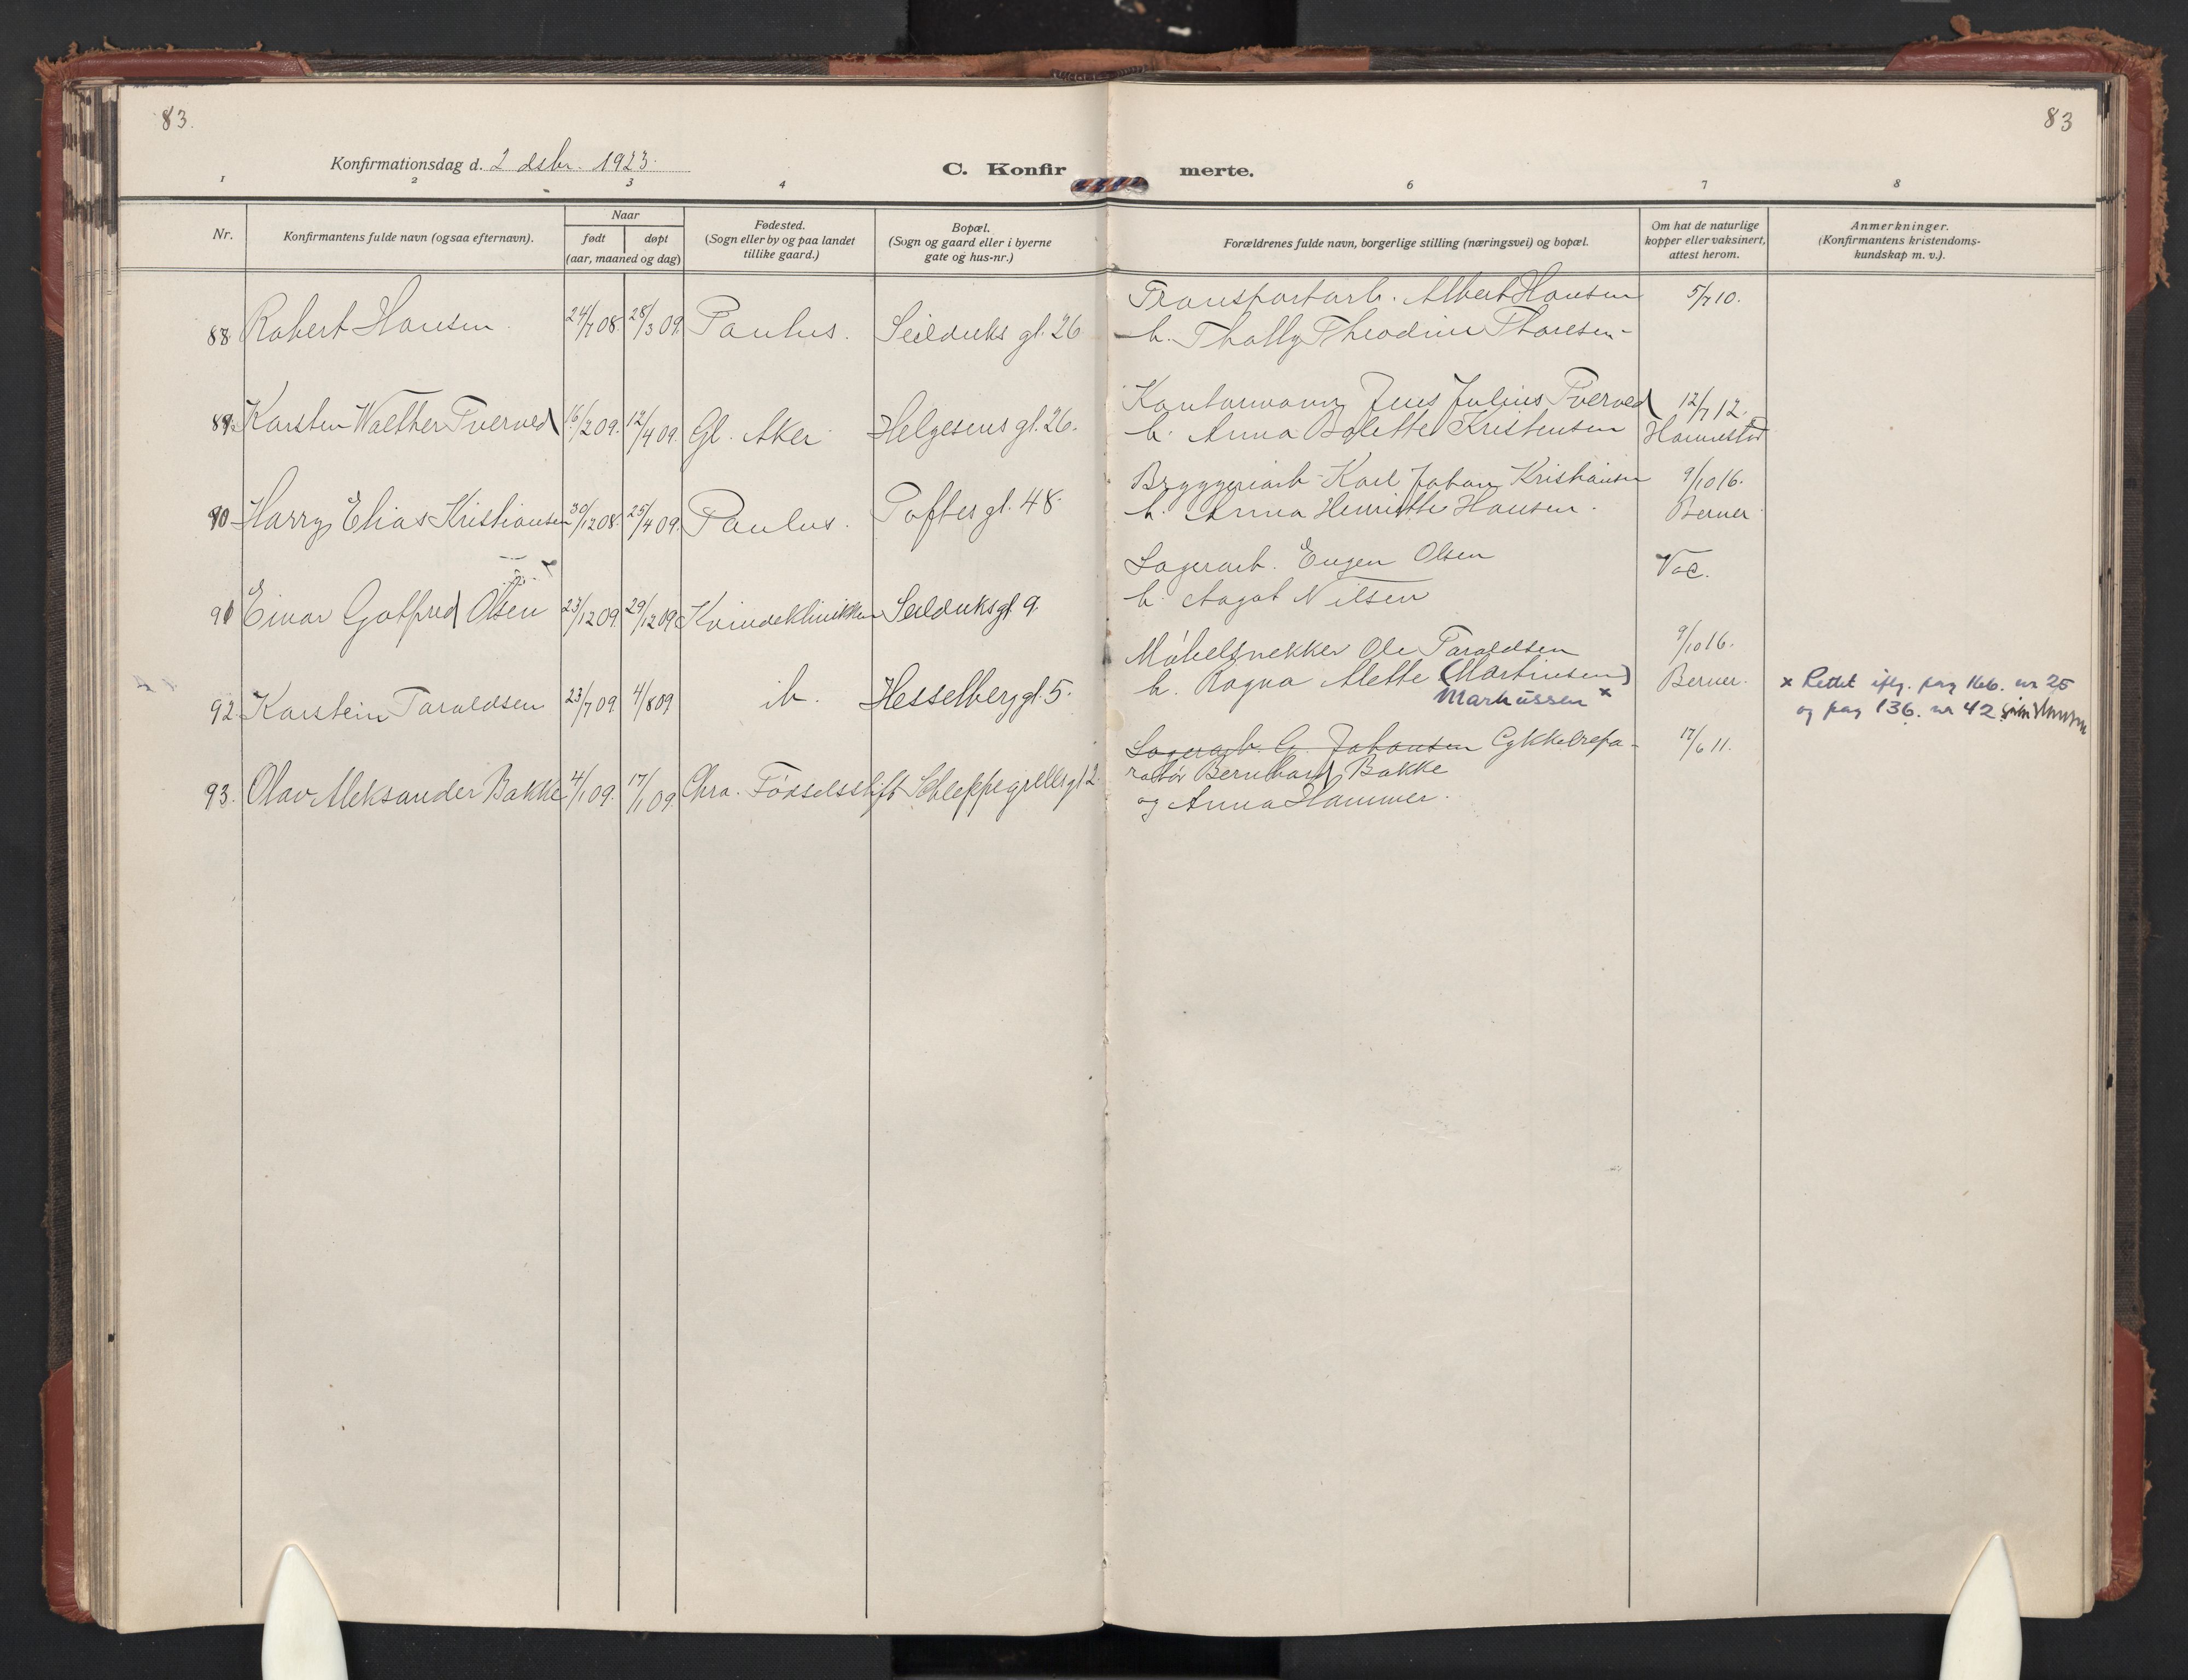 83.
83
Konfirmationsdag d. 2 desbr. 1923.
C. Konfirmerte.
1 2 3 4 6 7 8
Nr.
Konfirmantens fulde navn (ogsaa efternavn).
Naar
født døpt
(aar, maaned og dag)
Fødested.
(Sogn eller by og paa landet
tillike gaard.)
Bopæl.
(Sogn og gaard eller i byerne
gate og hus-nr.)
Forældrenes fulde navn, borgerlige stilling (næringsvei) og bopæl.
Om hat de naturlige
kopper eller vaksinert,
attest herom.
Anmerkninger.
(Konfirmantens kristendoms-
kundskap m. v.).
88. Robert Hansen. 24/7 08. 28/3 09. Paulus. Seilduks gt. 26
Transportarb. Albert Hansen 5/7 10.
h. Tholly Theodine Thoresen
89. Karsten Walther Tverved 16/2 09. 12/4 09. Gl. Aker. Helgesens gt. 26.
Kontormann Jens Julius Tverved 12/7 12.
h. Anna Bolette Kristensen
90 Harry Elias Kristiansen 30/12 08. 25/4 09. Paulus. Toftes gt. 48.
Bryggeriarb. Karl Johan Kristiansen 9/10 16.
h. Anna Henriette Hansen. Berner
91 Einar Gotfred Olsen 23/12 09. 29/12 09 Kvindeklinikken Seilduksgt. 9.
Lagerarb. Eugen Olsen Vac.
h. Aagot Nilsen
92. Karstein Taraldsen 23/7 09. 4/8 09 ib. Hesselberg gt. 5.
Møbelsnekker Ole Taraldsen 9/10 16.
h. Ragna Alette (Martinsen) Berner.
Markussen x
x Rettet iflg. pag 166. nr 25
og pag 136. nr 42
93. Olav Aleksander Bakke 4/1 09. 17/1 09 Chra. Fødselsstift Schleppegrellsgt 2.
Lagerarb. G. Johansen Cykkelrepa- 17/6 11.
ratør Bernhard Bakke
og Anna Hammer.